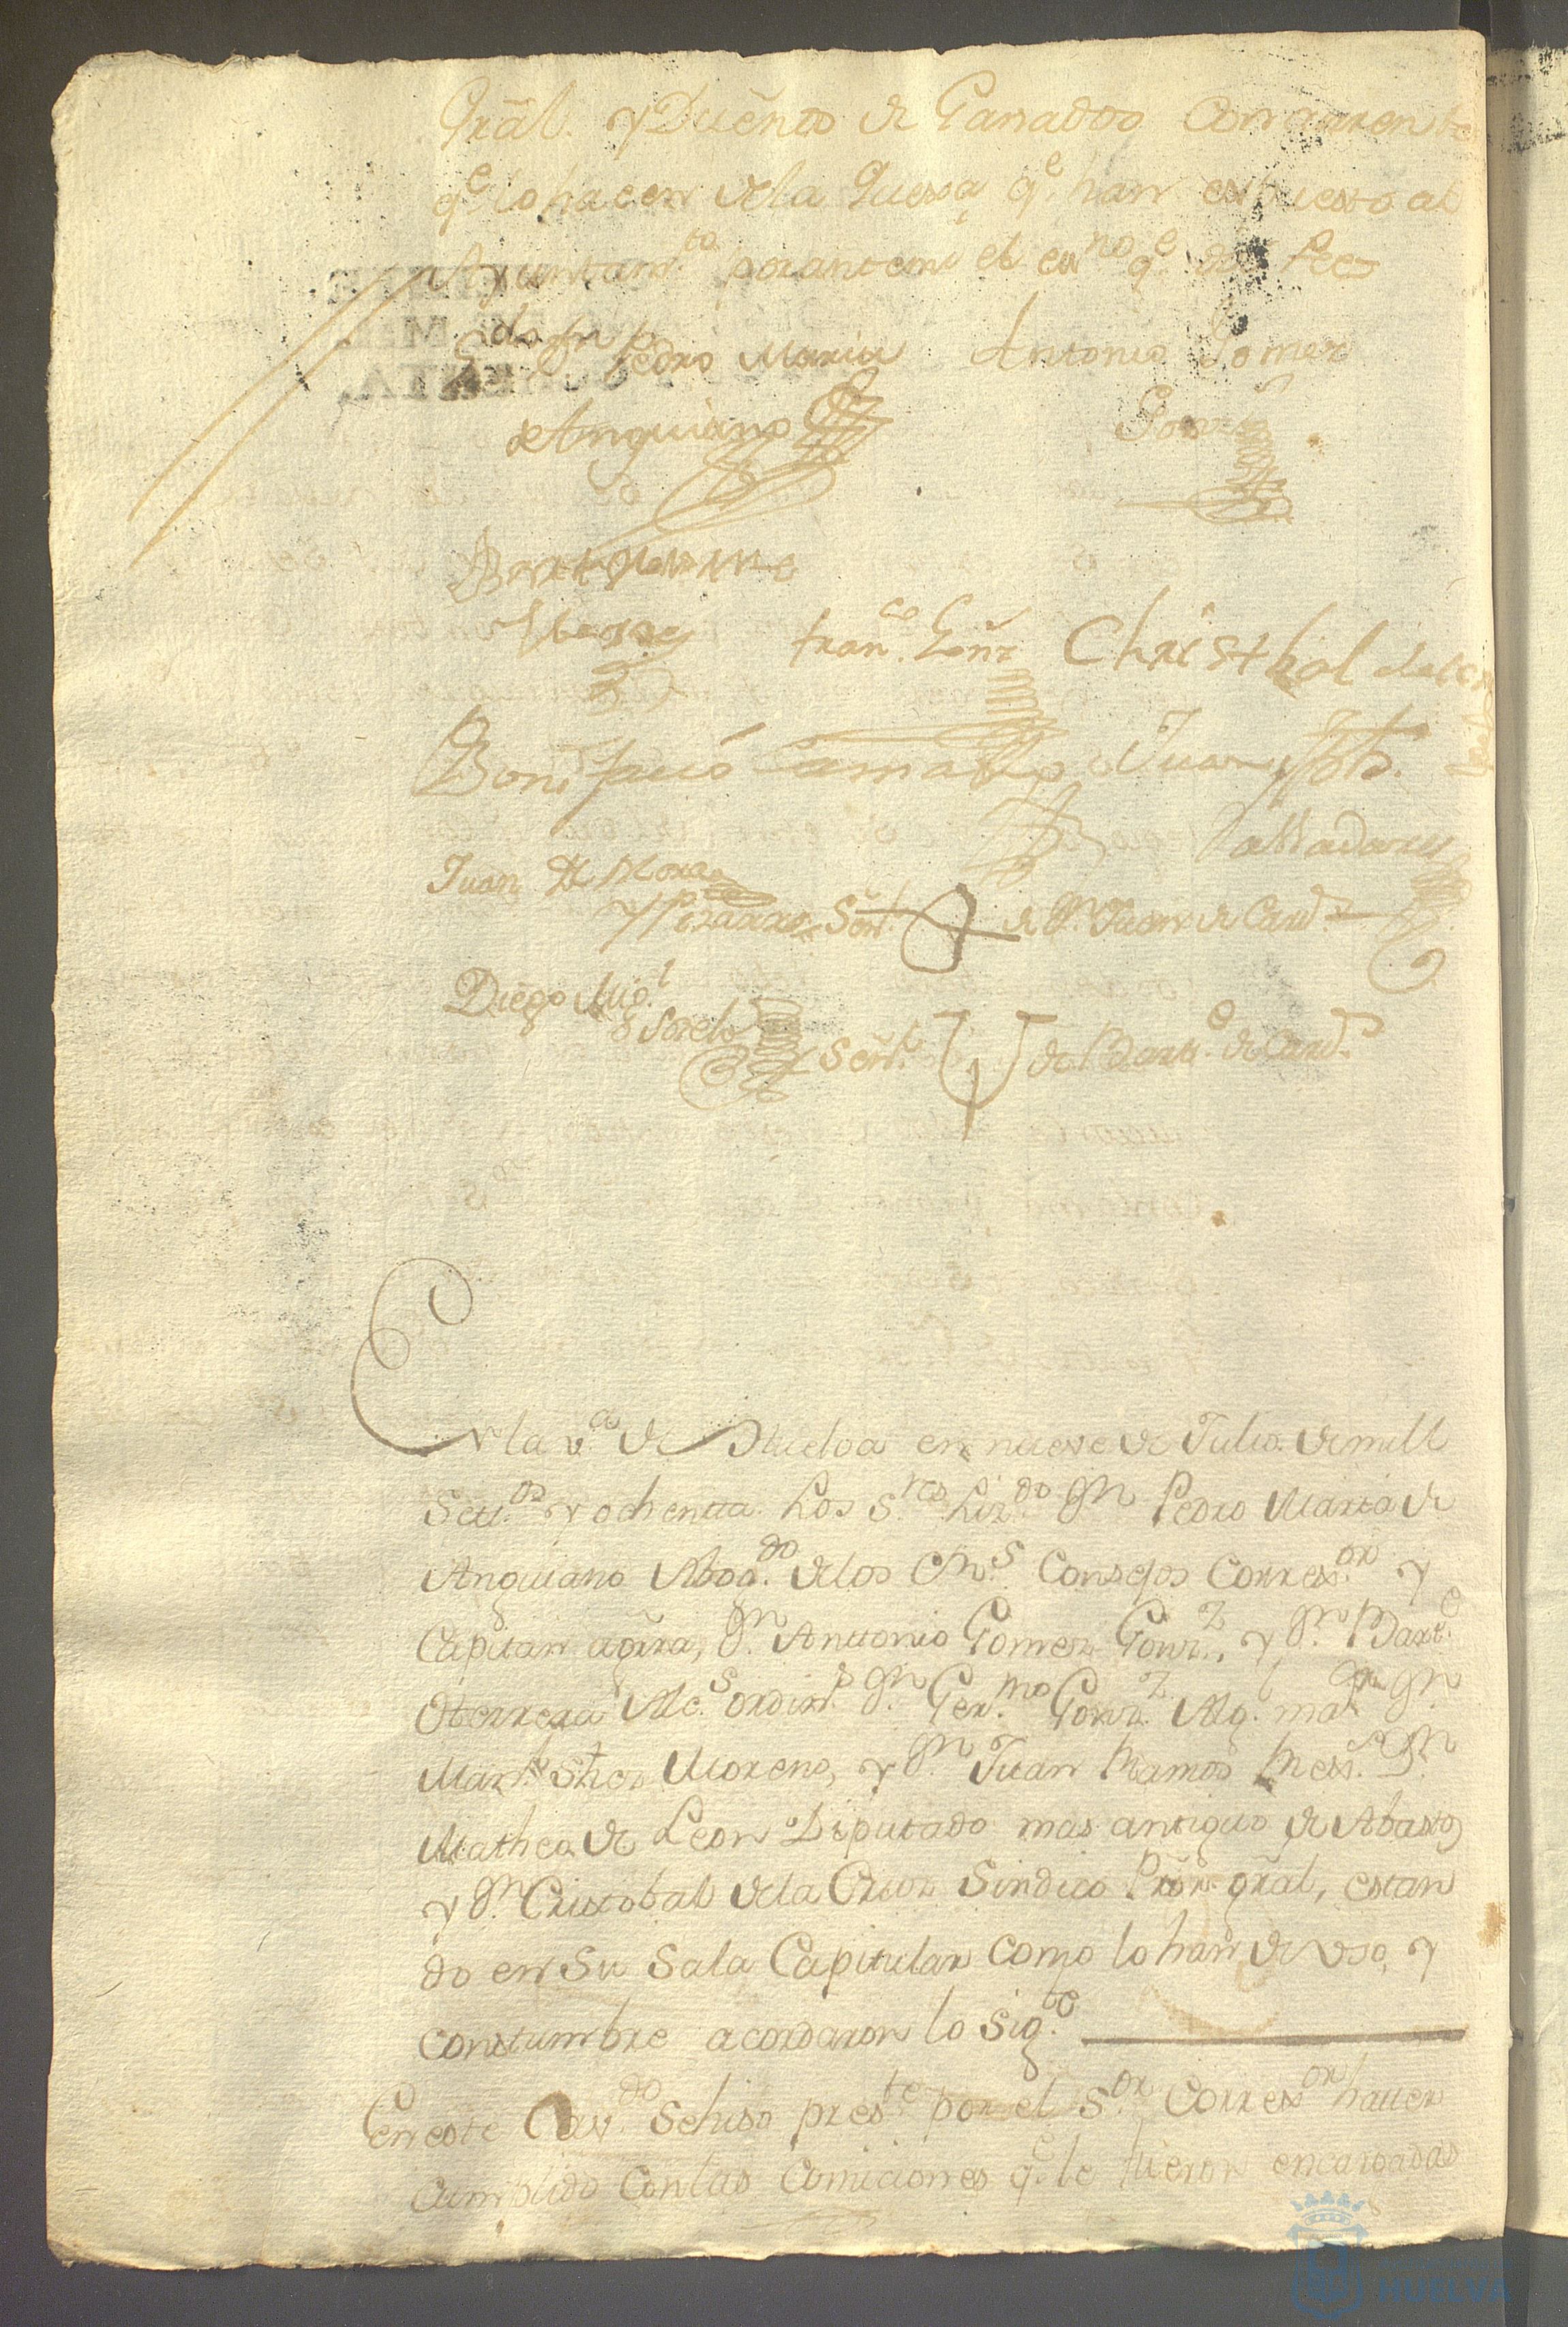 Grãl. y Dueños de Ganados Concurrentes
q.e lo hacen dela Quexa q.e han expuesto al
Ayuntam.to por ante mi el es.no q.e doi Fee
Lz.do D.n Pedro Maria Antonio Gomez
de Anguiano Gonz
Bartholome
Fran.co Christobal dela
Bonifacio Camacho Juan
Valladares
Juan de Mora
y Pizarro Señl. de D.n Juan de Card.s
Diego Mig.l
Sorelo
Señl. de Bart.e de Card.s
En la v.a de Huelva en nueve de Julio de mill
Sett.os y ochentta. Los S.res Liz.do D.n Pedro Maria de
Anguiano Abog.do delos R.s Consejos Correx.or y
Capitan agrra, D.n Anttonio Gomez Gonz.z, y D.n Bart.e
Oterrera Alc.s ordin.s D.n Ger.mo Gonz.z Alg.l mãr D.n
Mart.n Shes Moreno, y D.n Juan Ramos D.n
Matheo de Leon Diputado mas antiguo de Abastos
y D.n Cristobal dela Cruz Sindico Prõr grãl, estan
do en su Sala Capitular como lo han de uso, y
constumbre acordaron lo sig.te
En este Cav.do Sehiso pres.te por el S.or Correx.or hauer
cumplido con las comiciones q.e le fueron encargadas
HUELVA